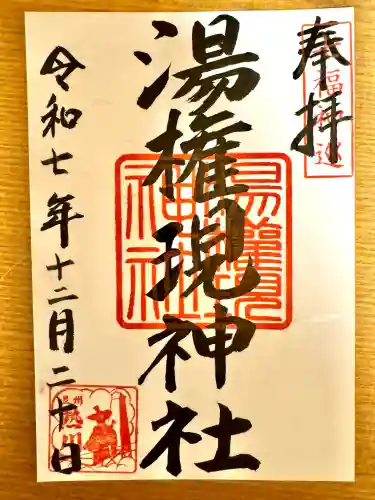 奉拝
湯権現神社
令和七年十二月二十日
湯権現神社
熱川